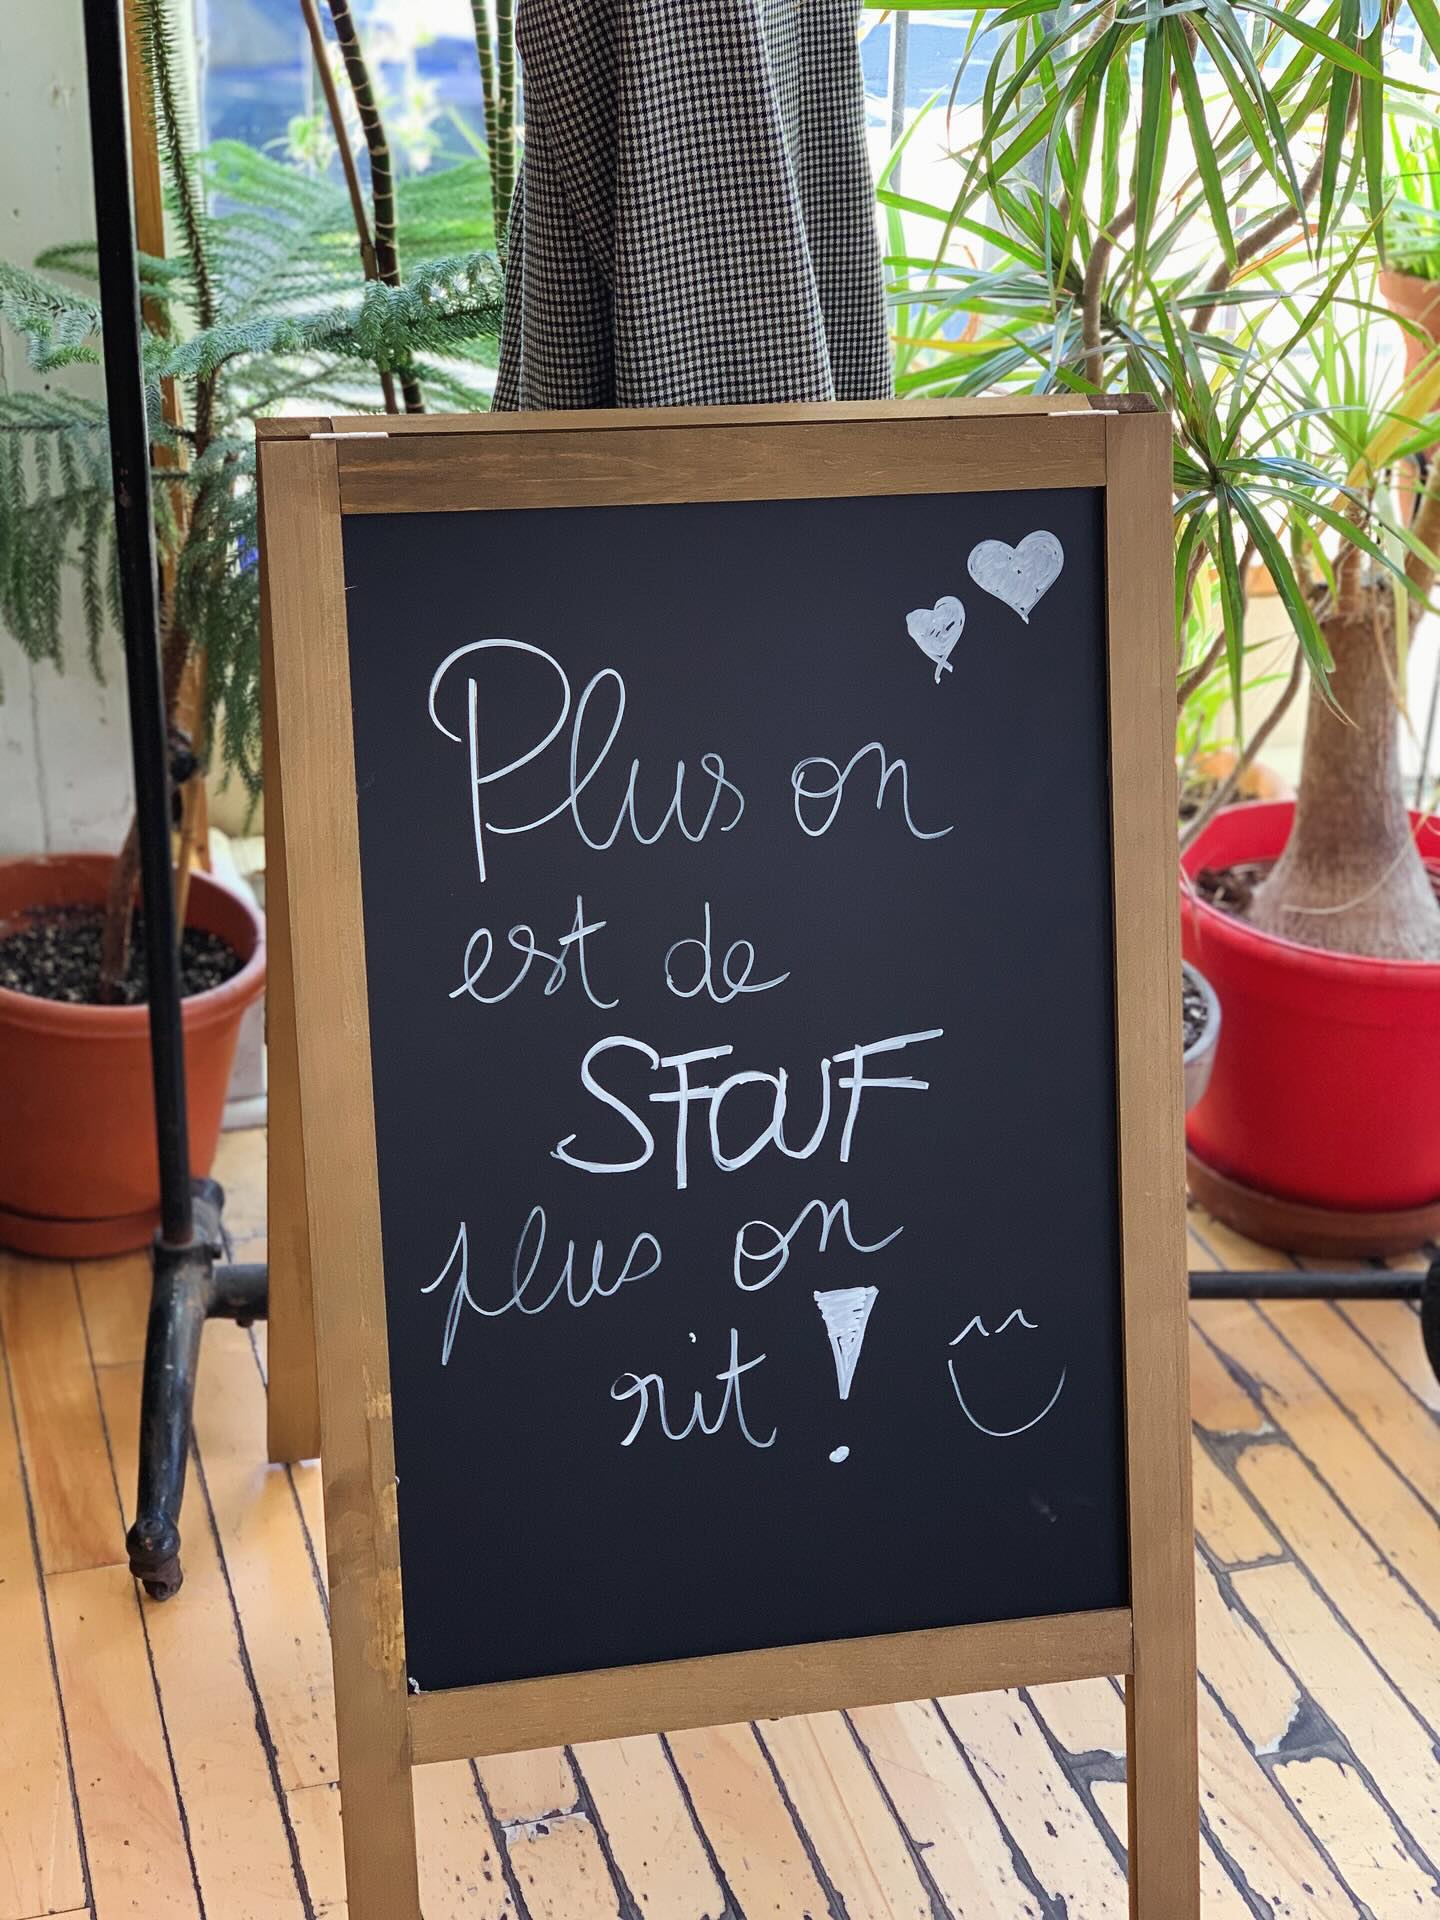 Plus on
est de
SFOUF
plus on
rit !